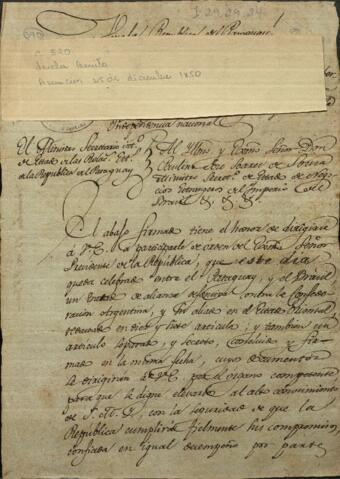 I-29,29,24
C. 520
Asunción 25 de diciembre 1850
Independencia nacional
El Ministro Secretario
de Estado de las Relac.
de la Republica del Paraguay
Al Illmo. y Exmo. Señor Don
Paulino José Soares de Souza
Ministro Secret.º de Estado de Nego
cios Estrangeros del Imperio del
Brasil & & &
El abajo firmado tiene el honor de dirigirse
á V. E. á participarle de orden del Exmo. Señor
Presidente de la Republica, que este dia
queda celebrado entre el Paraguay, y el Brasil
un tratado de alianza defensiva contra la Confede
racion Argentina, y su aliado en el Estado Oriental
en diez y siete articulos; y tambien un
articulo separado, y secreto, y fir
mado en la misma fecha, cuyos documentos
se dirigirán á V. E. por el organo competente
para que se digne elevarlo al alto conocimiento
de S. M. I., con la seguridad de que la
Republica cumplirá fielmente sus compromisos,
confiada en igual desempeño por parte